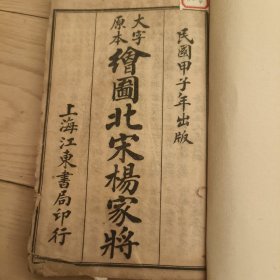 民國甲子年出版
大字
原本
繪圖北宋楊家將
上海江東書局印行